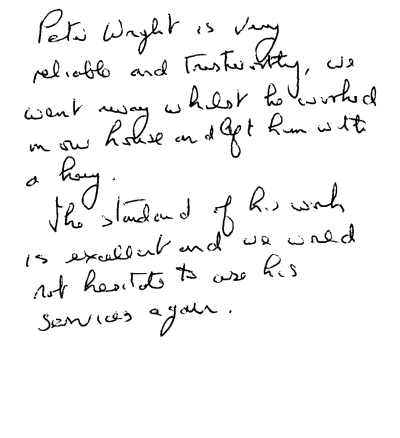 Peter Wright is very
reliable and Trustworthy, we
went away whilst he worked
in our house and left him with
a key.
The standard of his work
is excellent and we would
not hesitate to use his
services again.